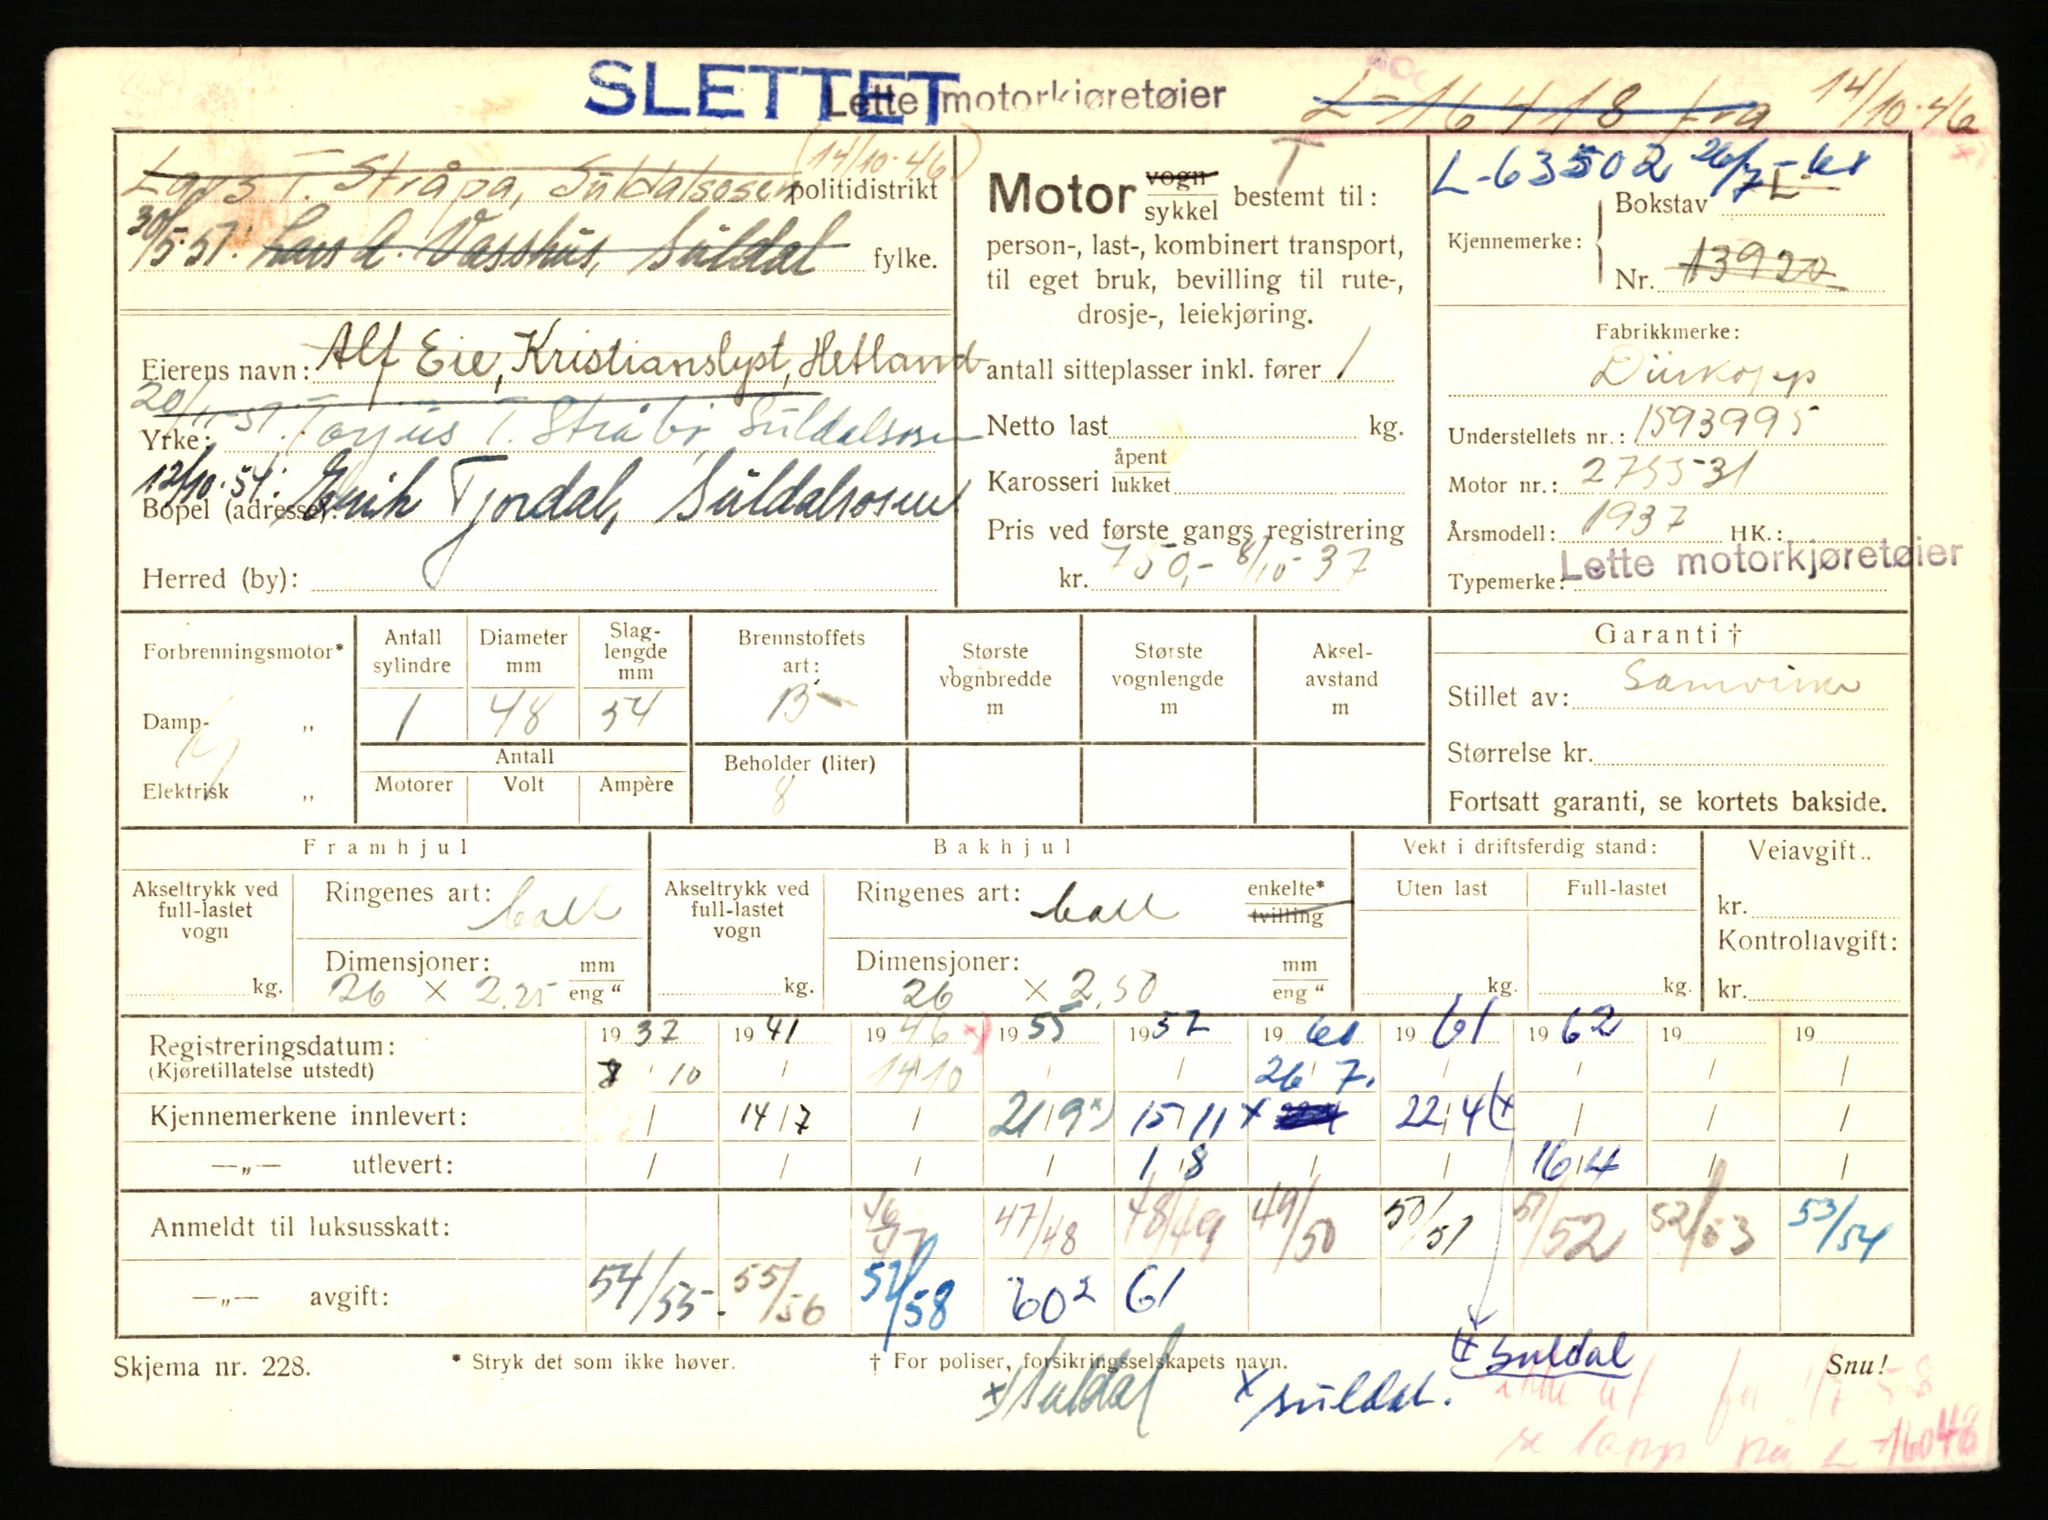 SLETTET
Lette motorkjøretøier
L-16418 fra 14/10-46
Lars T. Stråpa, Suldalsosen (14/10-46) politidistrikt
30/5-57: Lars L. Vasshus, Suldal fylke.
Eierens navn: Alf Eie, Kristianslyst, Hetland
20/11-51. Torjus T. Stråbø, Suldalsosen
Yrke:
12/10-54: Eirik Tjordal, Suldalsosen
Bopel (adresse):
Herred (by):
T
Motor vogn sykkel bestemt til:
person-, last-, kombinert transport,
til eget bruk, bevilling til rute-,
drosje-, leiekjøring.
antall sitteplasser inkl. fører 1
Netto last kg.
Karosseri åpent lukket
Pris ved første gangs registrering
kr. 750,- 8/10-37
L-63502 26/7-60
Kjennemerke: Bokstav L
Nr. 13920
Fabrikkmerke:
Dürkopp
Understellets nr.: 1593995
Motor nr.: 275531
Årsmodell: 1937 HK.:
Typemerke: Lette motorkjøretøier
Forbrenningsmotor*
Damp- „
Elektrisk „
Antall sylindre 1
Diameter mm 48
Slaglengde mm 54
Antall
Motorer Volt Ampère
Brennstoffets art: B
Beholder (liter) 8
Største vognbredde m
Største vognlengde m
Akselavstand m
Garanti †
Stillet av: Samvirke
Størrelse kr.
Fortsatt garanti, se kortets bakside.
Framhjul
Akseltrykk ved full-lastet vogn kg.
Ringenes art: ball
Dimensjoner: 26 × 2.25 mm eng "
Bakhjul
Akseltrykk ved full-lastet vogn kg.
Ringenes art: ball enkelte* tvilling
Dimensjoner: 26 × 2.50 mm eng "
Vekt i driftsferdig stand:
Uten last Full-lastet
kg. kg.
Veiavgift..
kr.
Kontrollavgift:
kr.
Registreringsdatum: 1937 1941 1946 x) 1955 1957 1960 1961 1962 19 19
(Kjøretillatelse utstedt) 8/10 14/10 26/7.
Kjennemerkene innlevert: 14/7 21/9 x) 15/11 x 22/4 (x
—„— utlevert: 1/8 16/4
Anmeldt til luksusskatt: 46/47 47/48 48/49 49/50 50/51 51/52 52/53 53/54
—„— avgift: 54/55. 55/56 57/58 60² 61
Skjema nr. 228. * Stryk det som ikke høver. † For poliser, forsikringsselskapets navn. Snu!
x) Suldal x Suldal. (x Suldal
ikke ut før 1/7 58
se lapp på L-16048